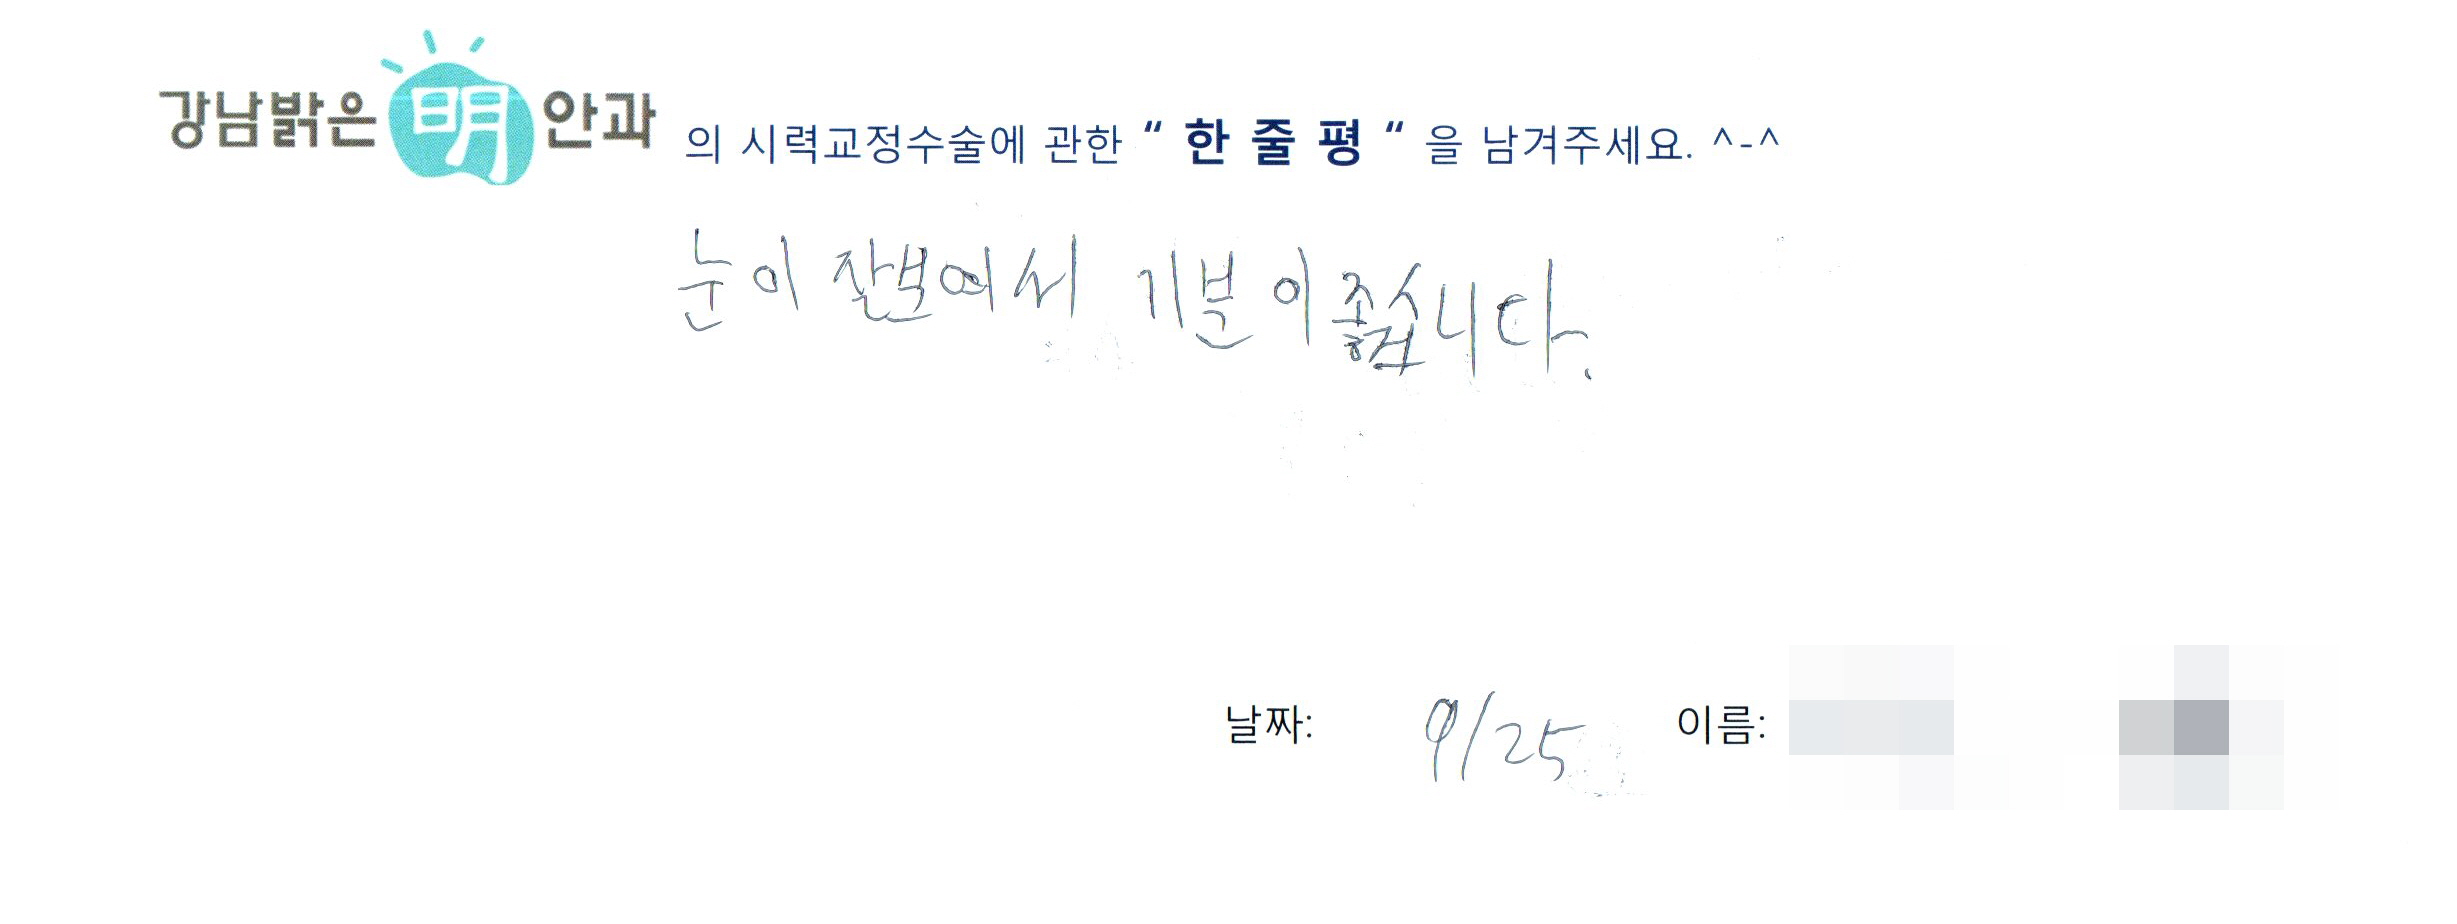 강남밝은 明 안과 의 시력교정수술에 관한 “ 한 줄 평 “ 을 남겨주세요. ^-^
눈이 잘보여서 기분이 좋습니다.
날짜: 9/25 이름: